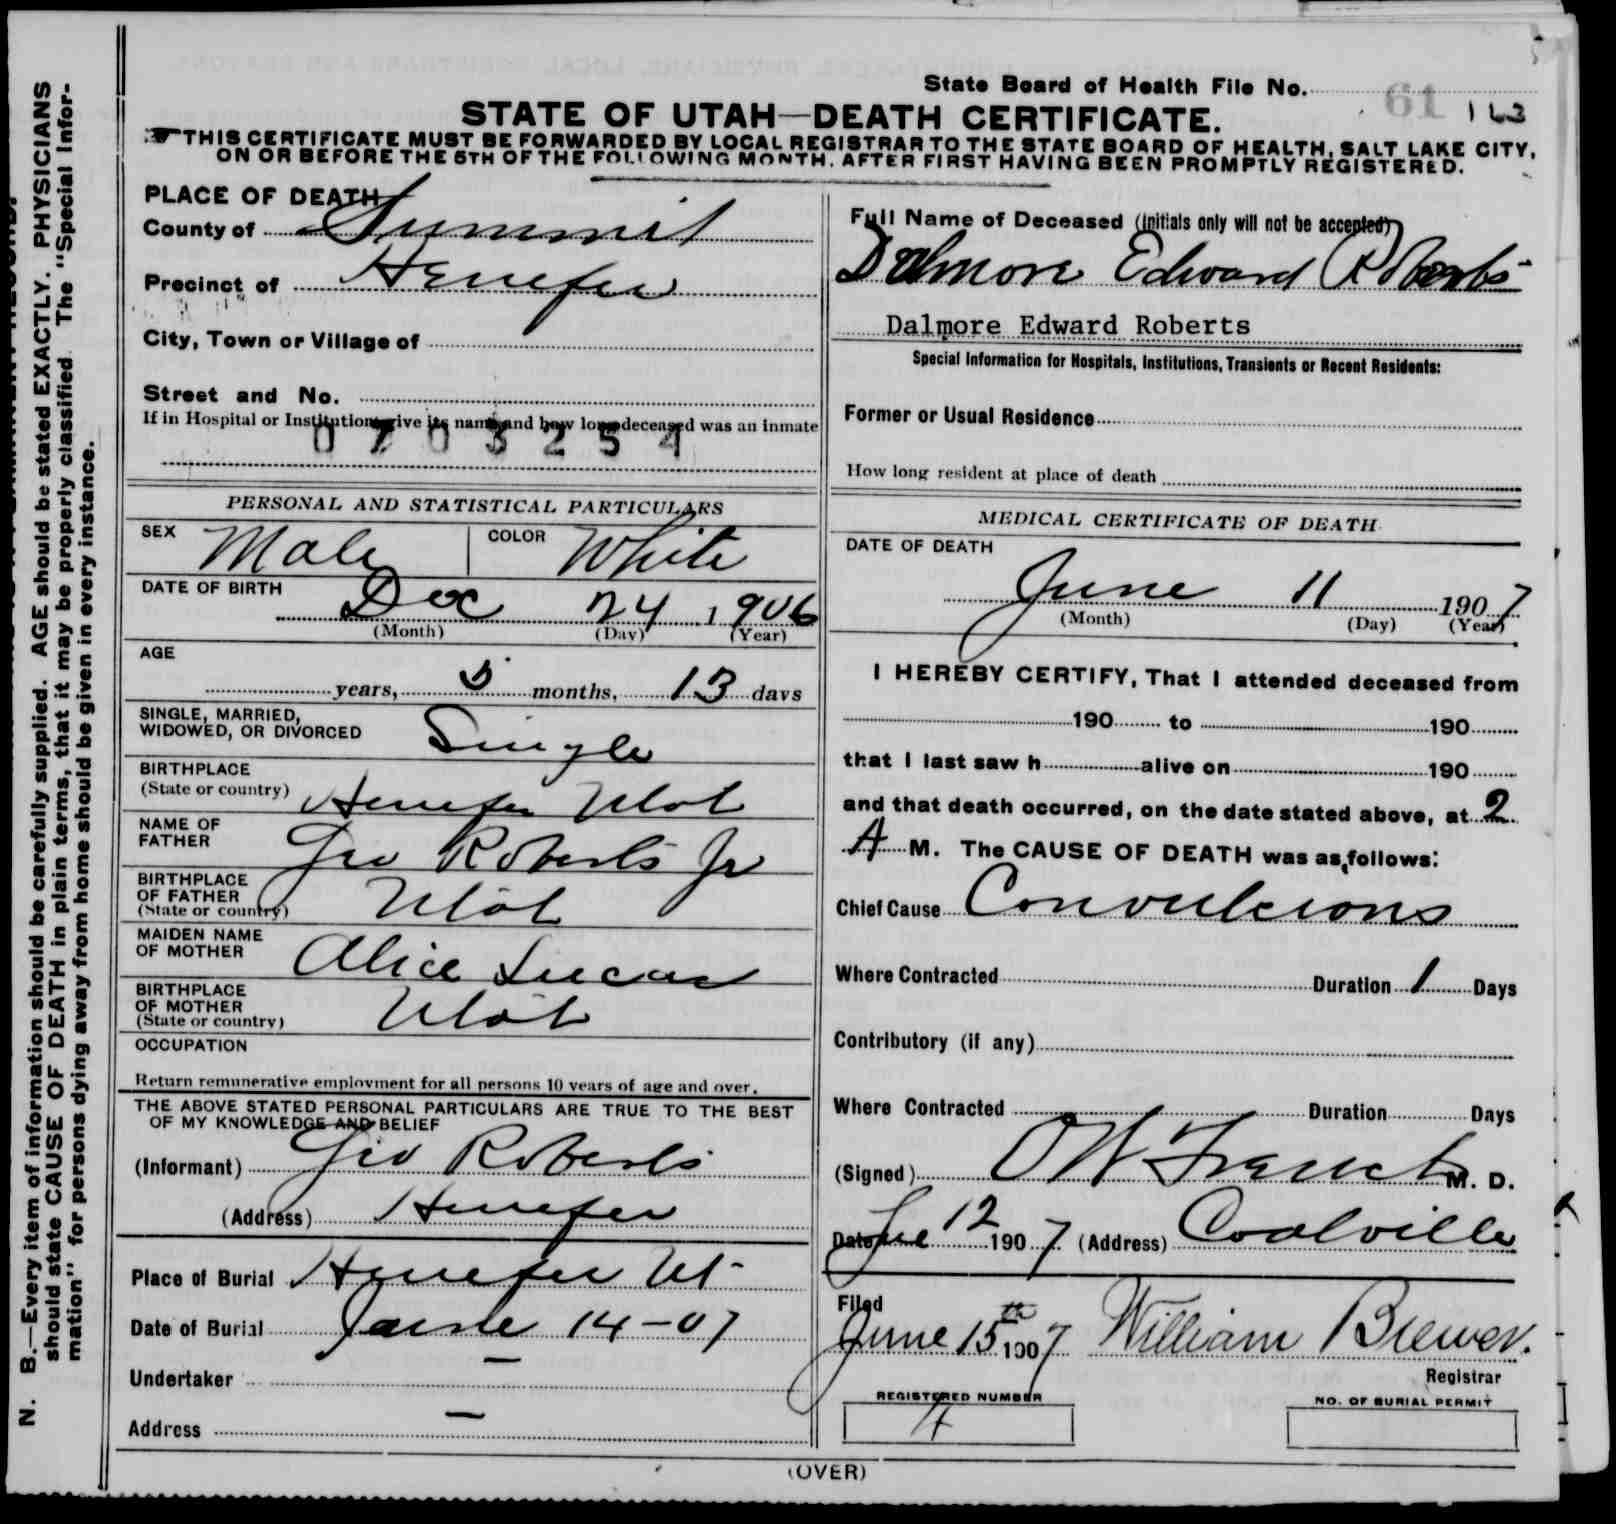 State Board of Health File No. 61 163
STATE OF UTAH—DEATH CERTIFICATE.
THIS CERTIFICATE MUST BE FORWARDED BY LOCAL REGISTRAR TO THE STATE BOARD OF HEALTH, SALT LAKE CITY,
ON OR BEFORE THE 5TH OF THE FOLLOWING MONTH, AFTER FIRST HAVING BEEN PROMPTLY REGISTERED.
PLACE OF DEATH
County of Summit
Precinct of Henefer
City, Town or Village of
Street and No.
If in Hospital or Institution, give its name and how long deceased was an inmate
0703254
PERSONAL AND STATISTICAL PARTICULARS
SEX Male COLOR White
DATE OF BIRTH Dec 24 1906
(Month) (Day) (Year)
AGE
years, 5 months, 13 days
SINGLE, MARRIED,
WIDOWED, OR DIVORCED Single
BIRTHPLACE
(State or country) Henefer Utah
NAME OF
FATHER Geo Roberts Jr
BIRTHPLACE
OF FATHER
(State or country) Utah
MAIDEN NAME
OF MOTHER Alice Lucas
BIRTHPLACE
OF MOTHER
(State or country) Utah
OCCUPATION
Return remunerative employment for all persons 10 years of age and over.
THE ABOVE STATED PERSONAL PARTICULARS ARE TRUE TO THE BEST
OF MY KNOWLEDGE AND BELIEF
(Informant) Geo Roberts
(Address) Henefer
Place of Burial Henefer Ut-
Date of Burial June 14-07
Undertaker —
Address —
Full Name of Deceased (Initials only will not be accepted)
Dalmore Edward Roberts
Dalmore Edward Roberts
Special Information for Hospitals, Institutions, Transients or Recent Residents:
Former or Usual Residence
How long resident at place of death
MEDICAL CERTIFICATE OF DEATH
DATE OF DEATH
June 11 1907
(Month) (Day) (Year)
I HEREBY CERTIFY, That I attended deceased from
190 to 190
that I last saw h alive on 190
and that death occurred, on the date stated above, at 2
A M. The CAUSE OF DEATH was as follows:
Chief Cause Convulsions
Where Contracted Duration 1 Days
Contributory (if any)
Where Contracted Duration Days
(Signed) O W French M. D.
Date June 12 1907 (Address) Coalville
Filed
June 15th 1907 William Brewer.
Registrar
REGISTERED NUMBER
4
NO. OF BURIAL PERMIT
(OVER)
N. B.—Every item of information should be carefully supplied. AGE should be stated EXACTLY. PHYSICIANS
should state CAUSE OF DEATH in plain terms, that it may be properly classified. The "Special Infor-
mation" for persons dying away from home should be given in every instance.